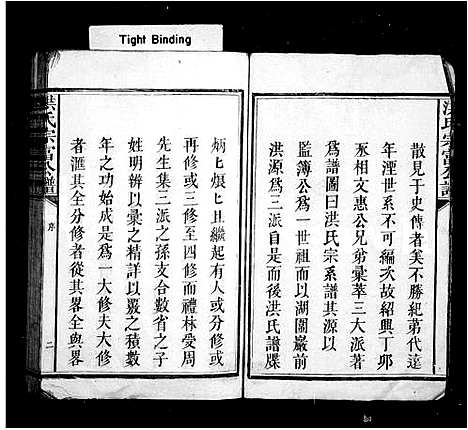 Tight Binding
散見于史傳者矣不勝紀苐代逺
年湮世系不可編次故紹興丁卯
丞相文惠公兄弟彙萃三大派著
為譜圖曰洪氏宗系譜其源以
監簿公為一世祖而以湖園嚴前
洪源為三派自是而後洪氏譜牒
炳匕烺匕且繼起有人或分修或
再修或三修至四修而禮林受周
先生集三派之孫支合數省之子
姓明辨以彙之精詳以覈之積數
年之功始成是為一大修夫大修
者滙其全分修者從其畧全與畧
洪氏宗
譜
序
二